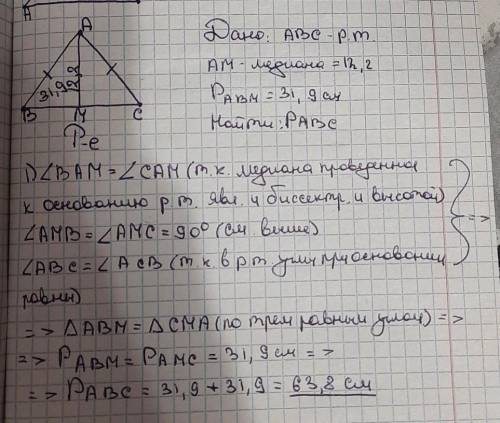 A
A
31,9
B
M
C
Дано: ABC - р.т.
AM - медиана = 12,2
P ABM = 31,9 см
Найти: P ABC
Р-е
1) ∠BAM = ∠CAM (т.к. медиана проведенная
к основанию р.т. явл. и биссектр. и высотой)
∠AMB = ∠AMC = 90° (см. выше)
∠ABC = ∠ACB (т.к. в р.т. углы при основании
равны)
=>
=> △ABM = △CMA (по трем равным углам) =>
=> P ABM = P AMC = 31,9 см =>
=> P ABC = 31,9 + 31,9 = 63,8 см